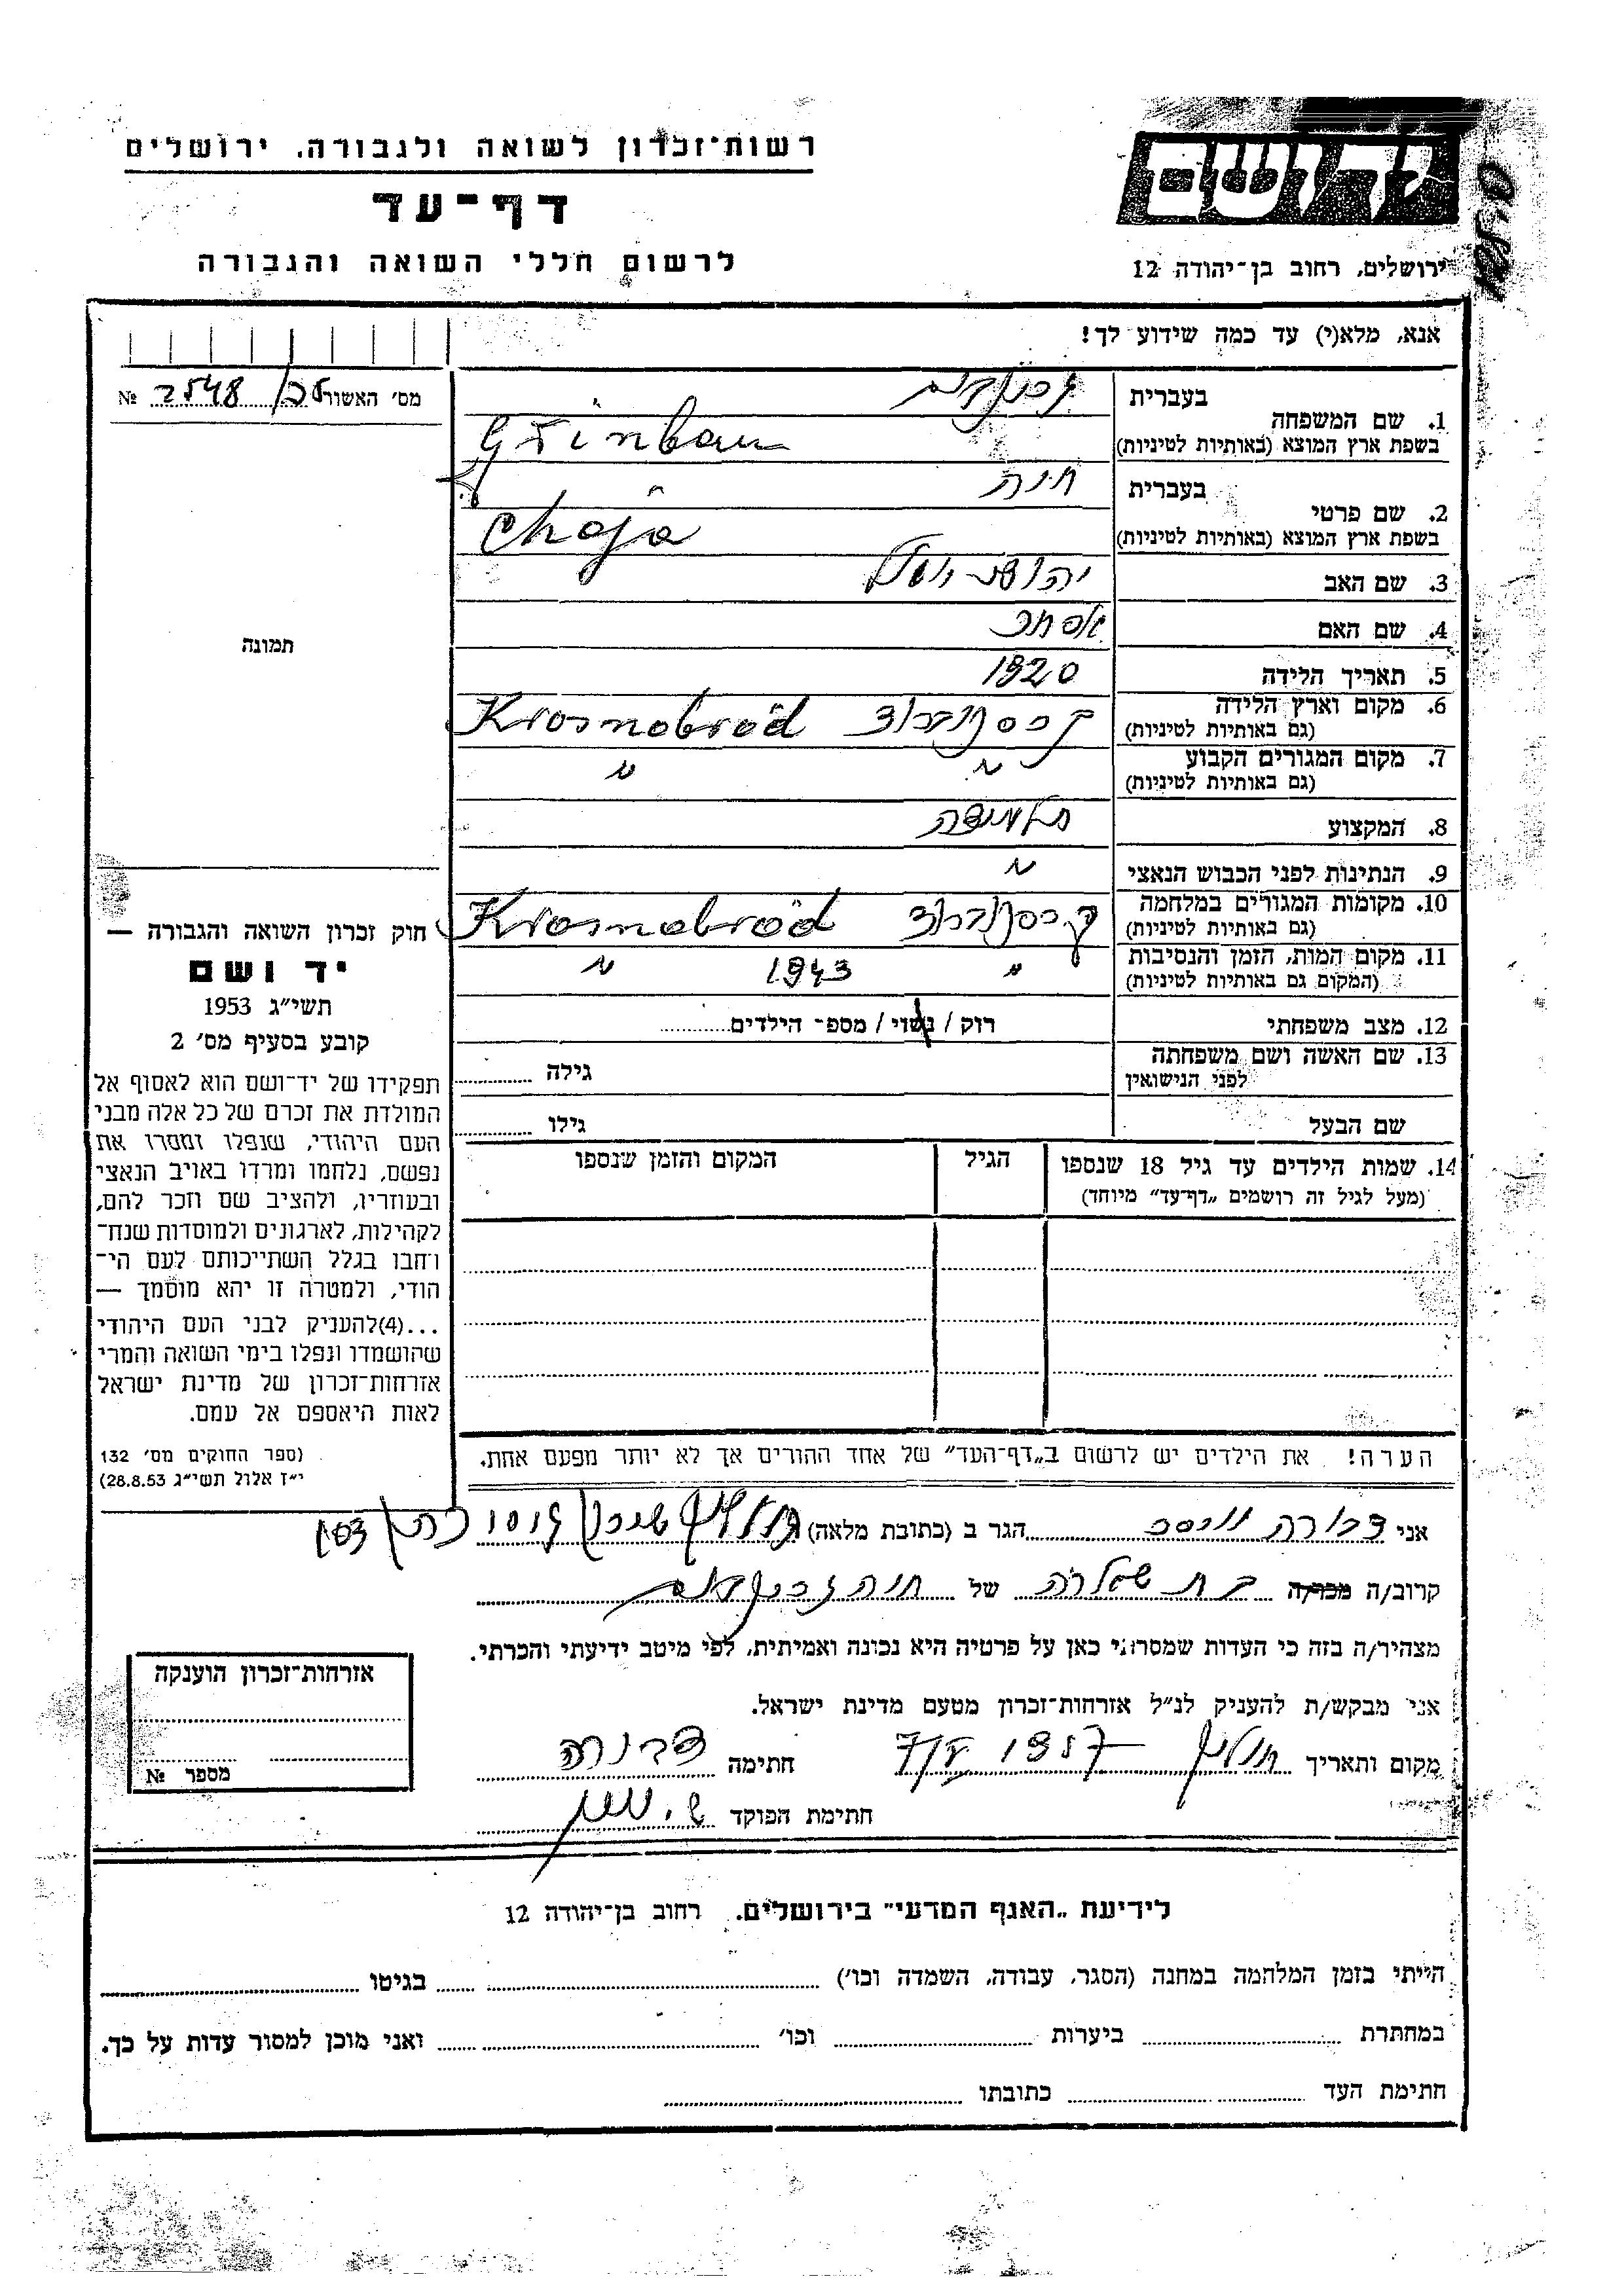 רשות־זכרון לשואה ולגבורה, ירושלים
דף־עד
לרשום חללי השואה והגבורה
יד ושם
ירושלים, רחוב בן־יהודה 12
אנא, מלא(י) עד כמה שידוע לך!
מס׳ האשור 25/2548 №
תמונה
1. שם המשפחה
בעברית
בשפת ארץ המוצא (באותיות לטיניות) Grinbau
2. שם פרטי
בעברית חיה
בשפת ארץ המוצא (באותיות לטיניות) Chaja
3. שם האב
4. שם האם אסתר
5. תאריך הלידה 1920
6. מקום וארץ הלידה
(גם באותיות לטיניות) קרסנוברוד Krosnobród
7. מקום המגורים הקבוע
(גם באותיות לטיניות) " "
8. המקצוע תלמידה
9. הנתינות לפני הכבוש הנאצי "
10. מקומות המגורים במלחמה
(גם באותיות לטיניות) קרסנוברוד Krosnobród
11. מקום המות, הזמן והנסיבות
(המקום גם באותיות לטיניות) " 1943 "
12. מצב משפחתי רוק / נשוי / מספ־ הילדים
13. שם האשה ושם משפחתה
לפני הנישואין גילה
שם הבעל גילו
14. שמות הילדים עד גיל 18 שנספו הגיל המקום והזמן שנספו
(מעל לגיל זה רושמים „דף־עד״ מיוחד)
הערה! את הילדים יש לרשום ב„דף־העד״ של אחד ההורים אך לא יותר מפעם אחת.
חוק זכרון השואה והגבורה —
יד ושם
תשי״ג 1953
קובע בסעיף מס׳ 2
תפקידו של יד־ושם הוא לאסוף אל
המולדת את זכרם של כל אלה מבני
העם היהודי, שנפלו ומסרו את
נפשם, נלחמו ומרדו באויב הנאצי
ובעוזריו, ולהציב שם וזכר להם,
לקהילות, לארגונים ולמוסדות שנח־
רחבו בגלל השתייכותם לעם הי־
הודי, ולמטרה זו יהא מוסמך —
...(4)להעניק לבני העם היהודי
שהושמדו ונפלו בימי השואה והמרי
אזרחות־זכרון של מדינת ישראל
לאות היאספם אל עמם.
(ספר החוקים מס׳ 132
י״ז אלול תשי״ג 28.8.53)
אני דבורה הגר ב (כתובת מלאה)
קרוב/ה מכר/ה של חיה
מצהיר/ה בזה כי העדות שמסרתי כאן על פרטיה היא נכונה ואמיתית, לפי מיטב ידיעתי והכרתי.
אני מבקש/ת להעניק לנ״ל אזרחות־זכרון מטעם מדינת ישראל.
מקום ותאריך חולון 1957 חתימה דבורה
חתימת הפוקד
אזרחות־זכרון הוענקה
מספר №
לידיעת „האגף המדעי״ בירושלים. רחוב בן־יהודה 12
הייתי בזמן המלחמה במחנה (הסגר, עבודה, השמדה וכו׳) בגיטו
במחתרת ביערות וכו׳ ואני מוכן למסור עדות על כך.
חתימת העד כתובתו